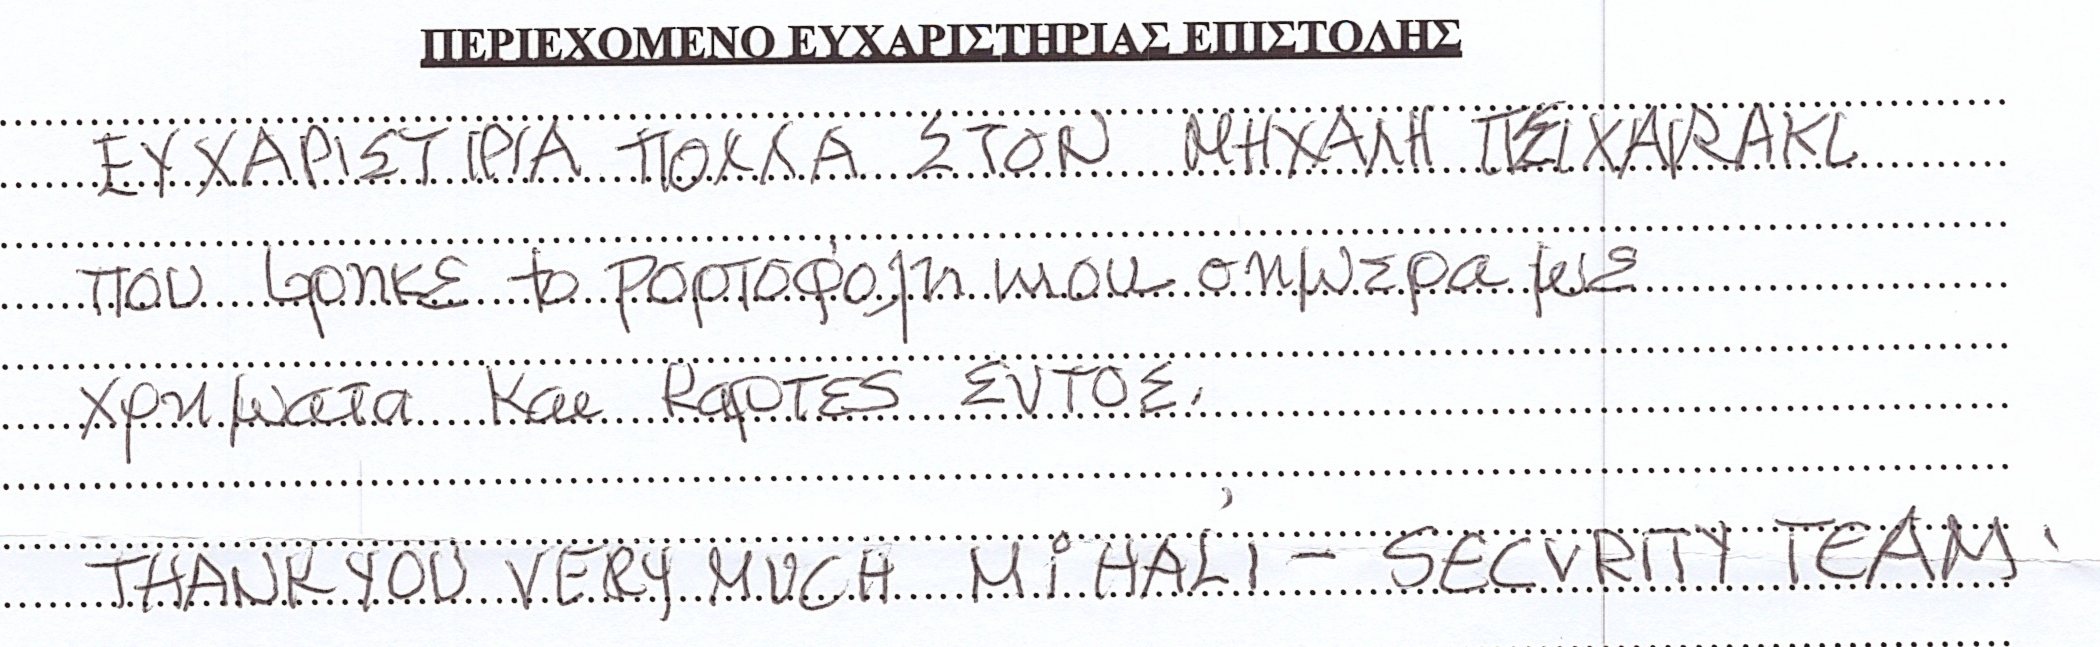 ΠΕΡΙΕΧΟΜΕΝΟ ΕΥΧΑΡΙΣΤΗΡΙΑΣ ΕΠΙΣΤΟΛΗΣ
ΕΥΧΑΡΙΣΤΙΡΙΑ ΠΟΛΛΑ ΣΤΟΝ ΜΗΧΑΛΗ
που βρηκε το πορτοφολη μου σημερα με
χρηματα και καρτες εντος.
THANK YOU VERY MUCH MIHALI - SECURITY TEAM.